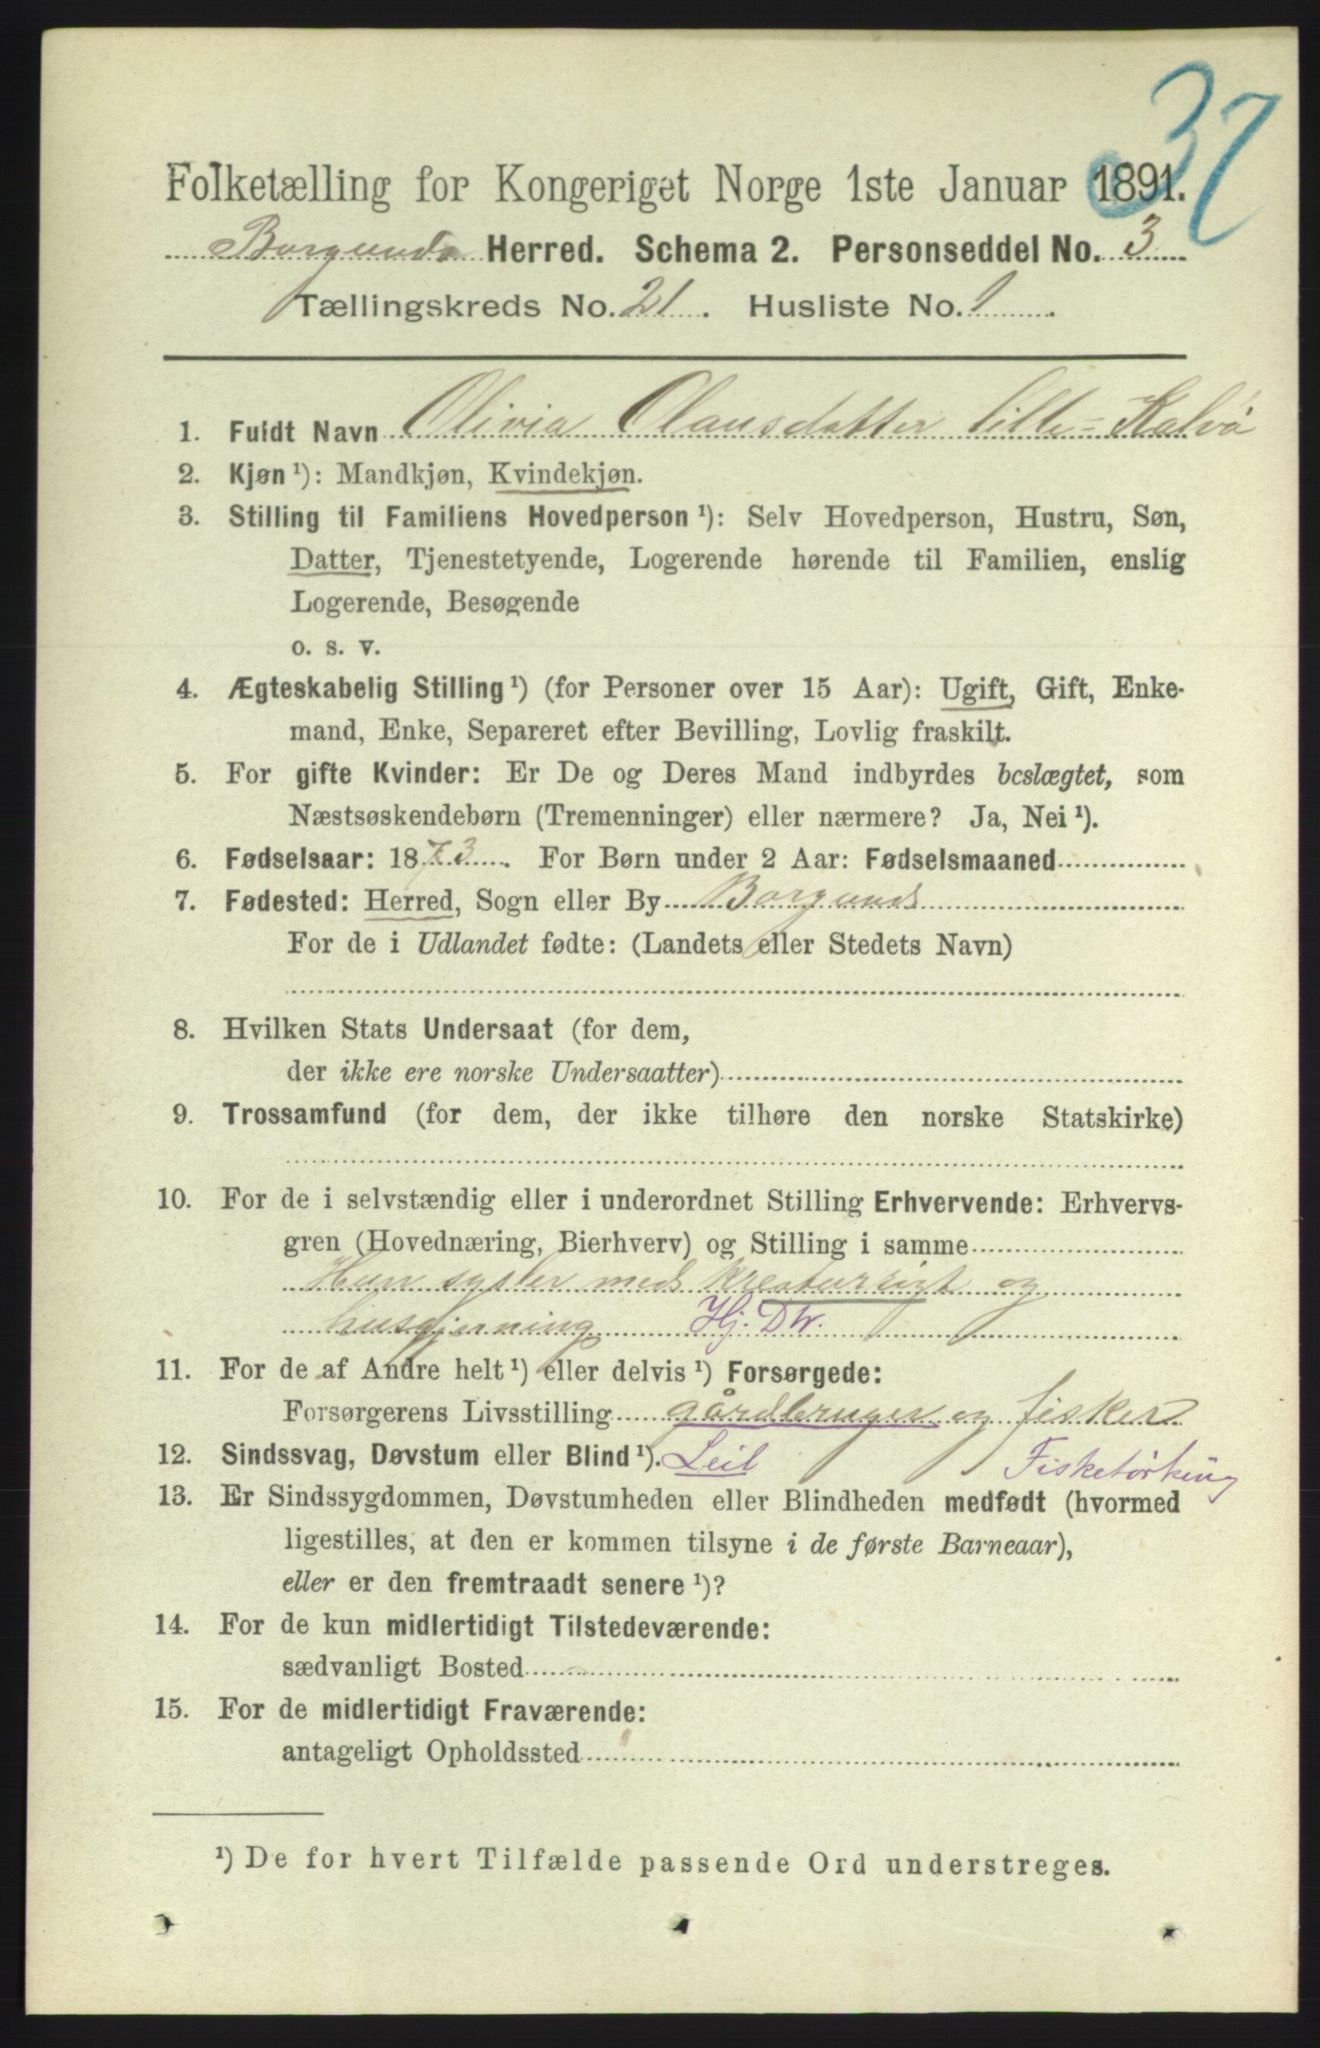 37
Folketælling for Kongeriget Norge 1ste Januar 1891.
Borgunds Herred. Schema 2. Personseddel No. 3
Tællingskreds No. 21. Husliste No. 1.
1. Fuldt Navn Olivia Olausdatter lille-Kalvö
2. Kjøn ¹): Mandkjøn, Kvindekjøn.
3. Stilling til Familiens Hovedperson ¹): Selv Hovedperson, Hustru, Søn,
Datter, Tjenestetyende, Logerende hørende til Familien, enslig
Logerende, Besøgende
o. s. v.
4. Ægteskabelig Stilling ¹) (for Personer over 15 Aar): Ugift, Gift, Enke-
mand, Enke, Separeret efter Bevilling, Lovlig fraskilt.
5. For gifte Kvinder: Er De og Deres Mand indbyrdes beslægtet, som
Næstsøskendebørn (Tremenninger) eller nærmere? Ja, Nei ¹).
6. Fødselsaar: 1873. For Børn under 2 Aar: Fødselsmaaned
7. Fødested: Herred, Sogn eller By Borgund
For de i Udlandet fødte: (Landets eller Stedets Navn)
8. Hvilken Stats Undersaat (for dem,
der ikke ere norske Undersaatter)
9. Trossamfund (for dem, der ikke tilhøre den norske Statskirke)
10. For de i selvstændig eller i underordnet Stilling Erhvervende: Erhvervs-
gren (Hovednæring, Bierhverv) og Stilling i samme
Hun sysler med kreaturrögt og
husgjerning Hj. Dtr.
11. For de af Andre helt ¹) eller delvis ¹) Forsørgede:
Forsørgerens Livsstilling gårdbruger og fisker
12. Sindssvag, Døvstum eller Blind ¹). Leil Fisketörking
13. Er Sindssygdommen, Døvstumheden eller Blindheden medfødt (hvormed
ligestilles, at den er kommen tilsyne i de første Barneaar),
eller er den fremtraadt senere ¹)?
14. For de kun midlertidigt Tilstedeværende:
sædvanligt Bosted
15. For de midlertidigt Fraværende:
antageligt Opholdssted
¹) De for hvert Tilfælde passende Ord understreges.